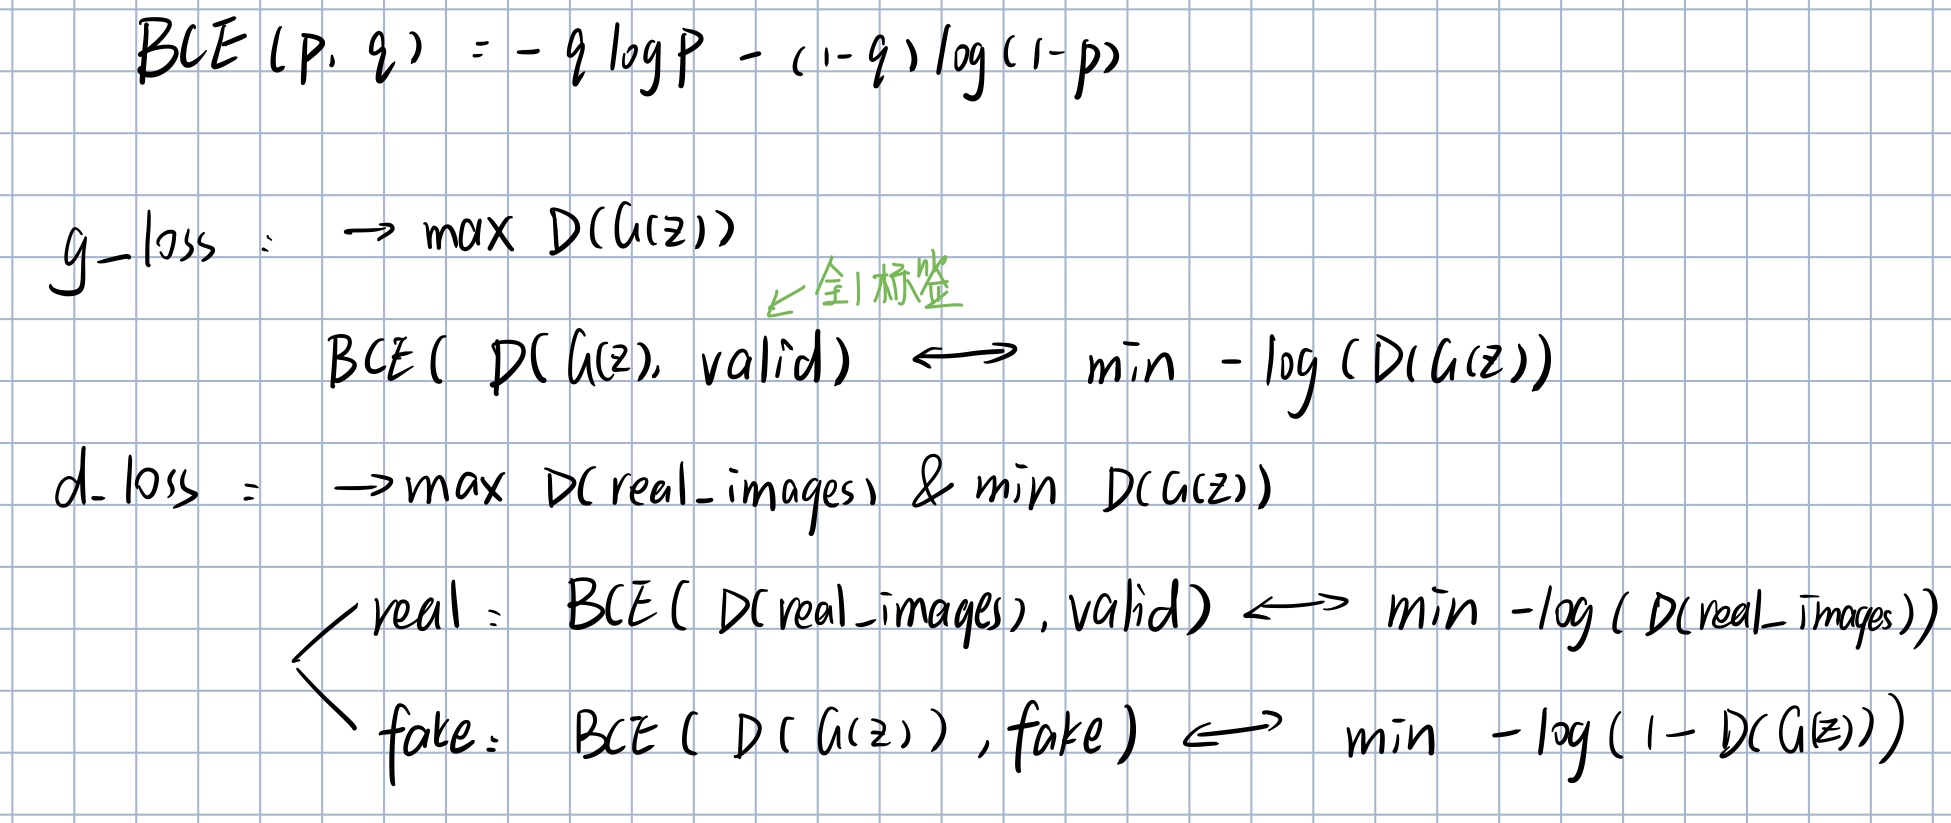 BCE(p, q) = - q log p - (1-q) log(1-p)
g-loss : → max D(G(z))
↙ 全1标签
BCE( D( G(z), valid) ⟷ min - log (D(G(z))
d-loss : → max D(real_images) & min D(G(z))
real: BCE( D(real_images), valid) ⟷ min -log( D(real_images))
fake: BCE( D(G(z)), fake) ⟷ min -log(1- D(G(z)))